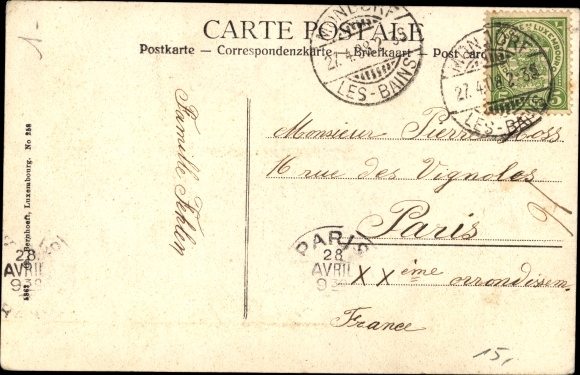 1.-
CARTE POSTALE
Postkarte — Correspondenzkarte — Briefkaart — Post card
MONDORF
27.4.08 2-3S
LES-BAINS
MONDORF
27.4.08 2-3S
LES-BAINS
5
Famille
Monsieur Pierre
16 rue des Vignoles
Paris
XXème arrondissem.
France
PARIS
28
AVRIL
28
AVRIL
Bernhoeft, Luxembourg. No 258
15,